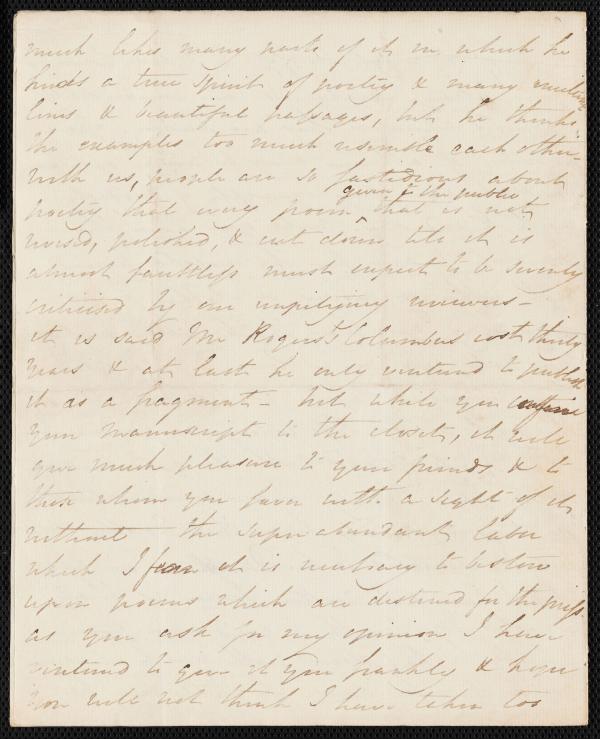 much likes many parts of it in which he
finds a true spirit of poetry & many
lines & beautiful passages, but he thinks
the examples too much resemble each other -
with us, people are so fastidious about
poetry that every poem given to the public that is not
revised, polished, & cut down till it is
almost faultless must expect to be severely
criticised by our unpitying reviewers -
it is said Mr Rogers's Columbus cost thirty
years & at last he only ventured to publish
it as a fragment - but while you confine
your manuscript to the closet, it will
give much pleasure to your friends & to
those whom you favor with a sight of it
without the super abundant labor
which I fear it is necessary to bestow
upon poems which are destined for the press.
as you ask for my opinion I have
ventured to give it you frankly & hope
you will not think I have taken too